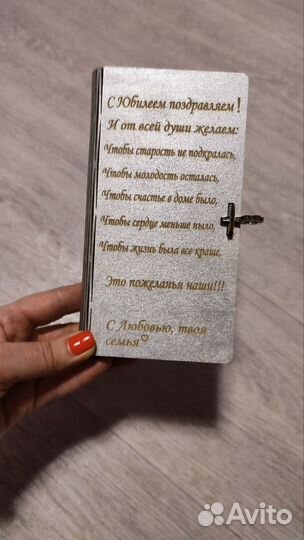 С Юбилеем поздравляем!
И от всей души желаем:
Чтобы старость не подкралась,
Чтобы молодость осталась,
Чтобы счастье в доме было,
Чтобы сердце меньше ныло,
Чтобы жизнь была все краше,
Это пожеланья наши!!!
С Любовью, твоя
семья♡
Avito